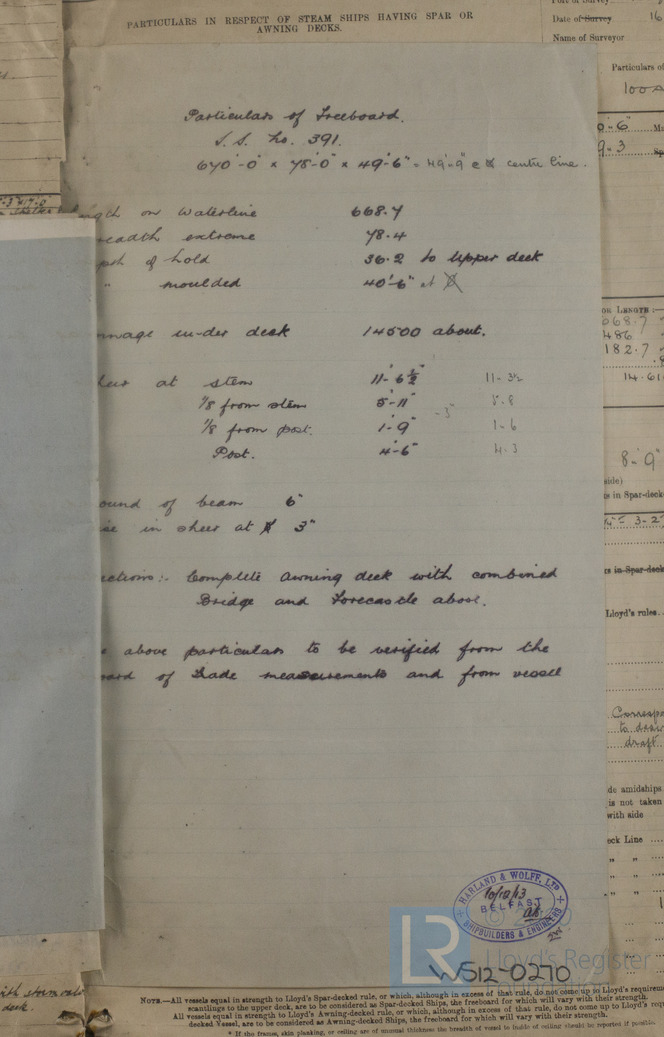 PARTICULARS IN RESPECT OF STEAM SHIPS HAVING SPAR OR
AWNING DECKS.
Date of Survey 16
Name of Surveyor
Particulars of
100A
Particulars of Freeboard.
S.S. No. 391.
670'-0" x 78'-0" x 49'-6" = 49'-9" @ centre line.
0'-6"
9-3
ngth on Waterline 668.7
readth extreme 78.4
pth of hold 36.2 to Upper deck
" moulded 40'-6" at
nnage under deck 14500 about.
heer at stem 11'-6½" 11-3½
⅛ from stem 5'-11" -3" 5-8
⅛ from post. 1'-9" 1-6
Post. 4'-6" 4-3
ound of beam 6"
se in sheer at 3"
ections:- Complete Awning deck with combined
Bridge and Forecastle above.
e above particulars to be verified from the
oard of Trade measurements and from vessel
OR LENGTH:—
668.7
486
182.7
14.61
8'-9"
side)
s in Spar-deck
3-2
s in Spar-deck
Lloyd's rules.
Corresp
to draw
draft
de amidships
is not taken
with side
eck Line
" "
" "
" "
HARLAND & WOLFF, LTD
10/12/13
BELFAST
SHIPBUILDERS & ENGINEERS
LR
© 2020
Lloyd's Register
W512-0270
with storm
deck.
NOTE.—All vessels equal in strength to Lloyd's Spar-decked rule, or which, although in excess of that rule, do not come up to Lloyd's requirem
scantlings to the upper deck, are to be considered as Spar-decked Ships, the freeboard for which will vary with their strength.
All vessels equal in strength to Lloyd's Awning-decked rule, or which, although in excess of that rule, do not come up to Lloyd's req
decked Vessel, are to be considered as Awning-decked Ships, the freeboard for which will vary with their strength.
* If the frames, skin planking, or ceiling are of unusual thickness the breadth of vessel to inside of ceiling should be reported if possible.